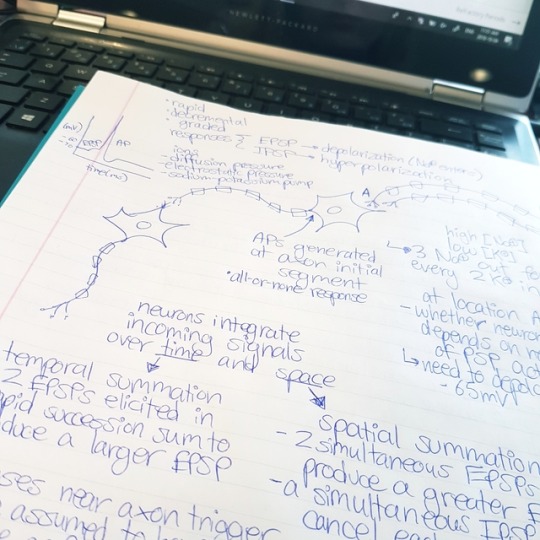 HEWLETT-PACKARD
• rapid
• decremental
• graded
responses EPSP → depolarization (Na+ enters)
IPSP → hyperpolarization
ions
- diffusion pressure
- electrostatic pressure
- sodium potassium pump
(mV)
EPSP
AP
time (ms)
A
APs generated
at axon initial
segment
• all-or-none response
high [Na+]
low [K+]
↳ 3 Na+ out fo
every 2 K+ in
at location A
- whether neuron
depends on n
of PSP act
↳ need to depola
- 65mV
neurons integrate
incoming signals
over time and space
temporal summation
2 EPSPs elicited in
pid succession sum to
duce a larger EPSP
spatial summation
- 2 simultaneous EPSPs
produce a greater E
- a simultaneous IPSP
cancel each
ses near axon trigger
assumed to